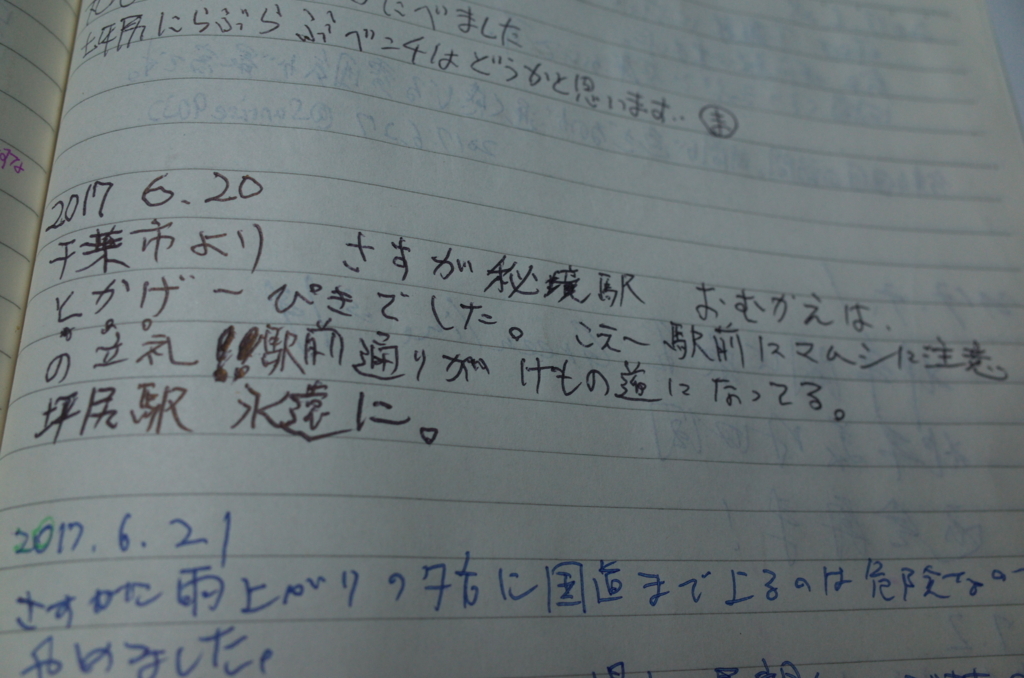 べました
坪尻にらぶらぶベンチはどうかと思います..
2017 6.20
千葉市より さすが秘境駅 おむかえは、
とかげ一ぴきでした。 こえ〜駅前にマムシに注意
の立札!!駅前通りがけもの道になってる。
坪尻駅 永遠に。
2017.6.21
さすがに雨上がりの夕方に国道まで上るのは危険なので
やめました。